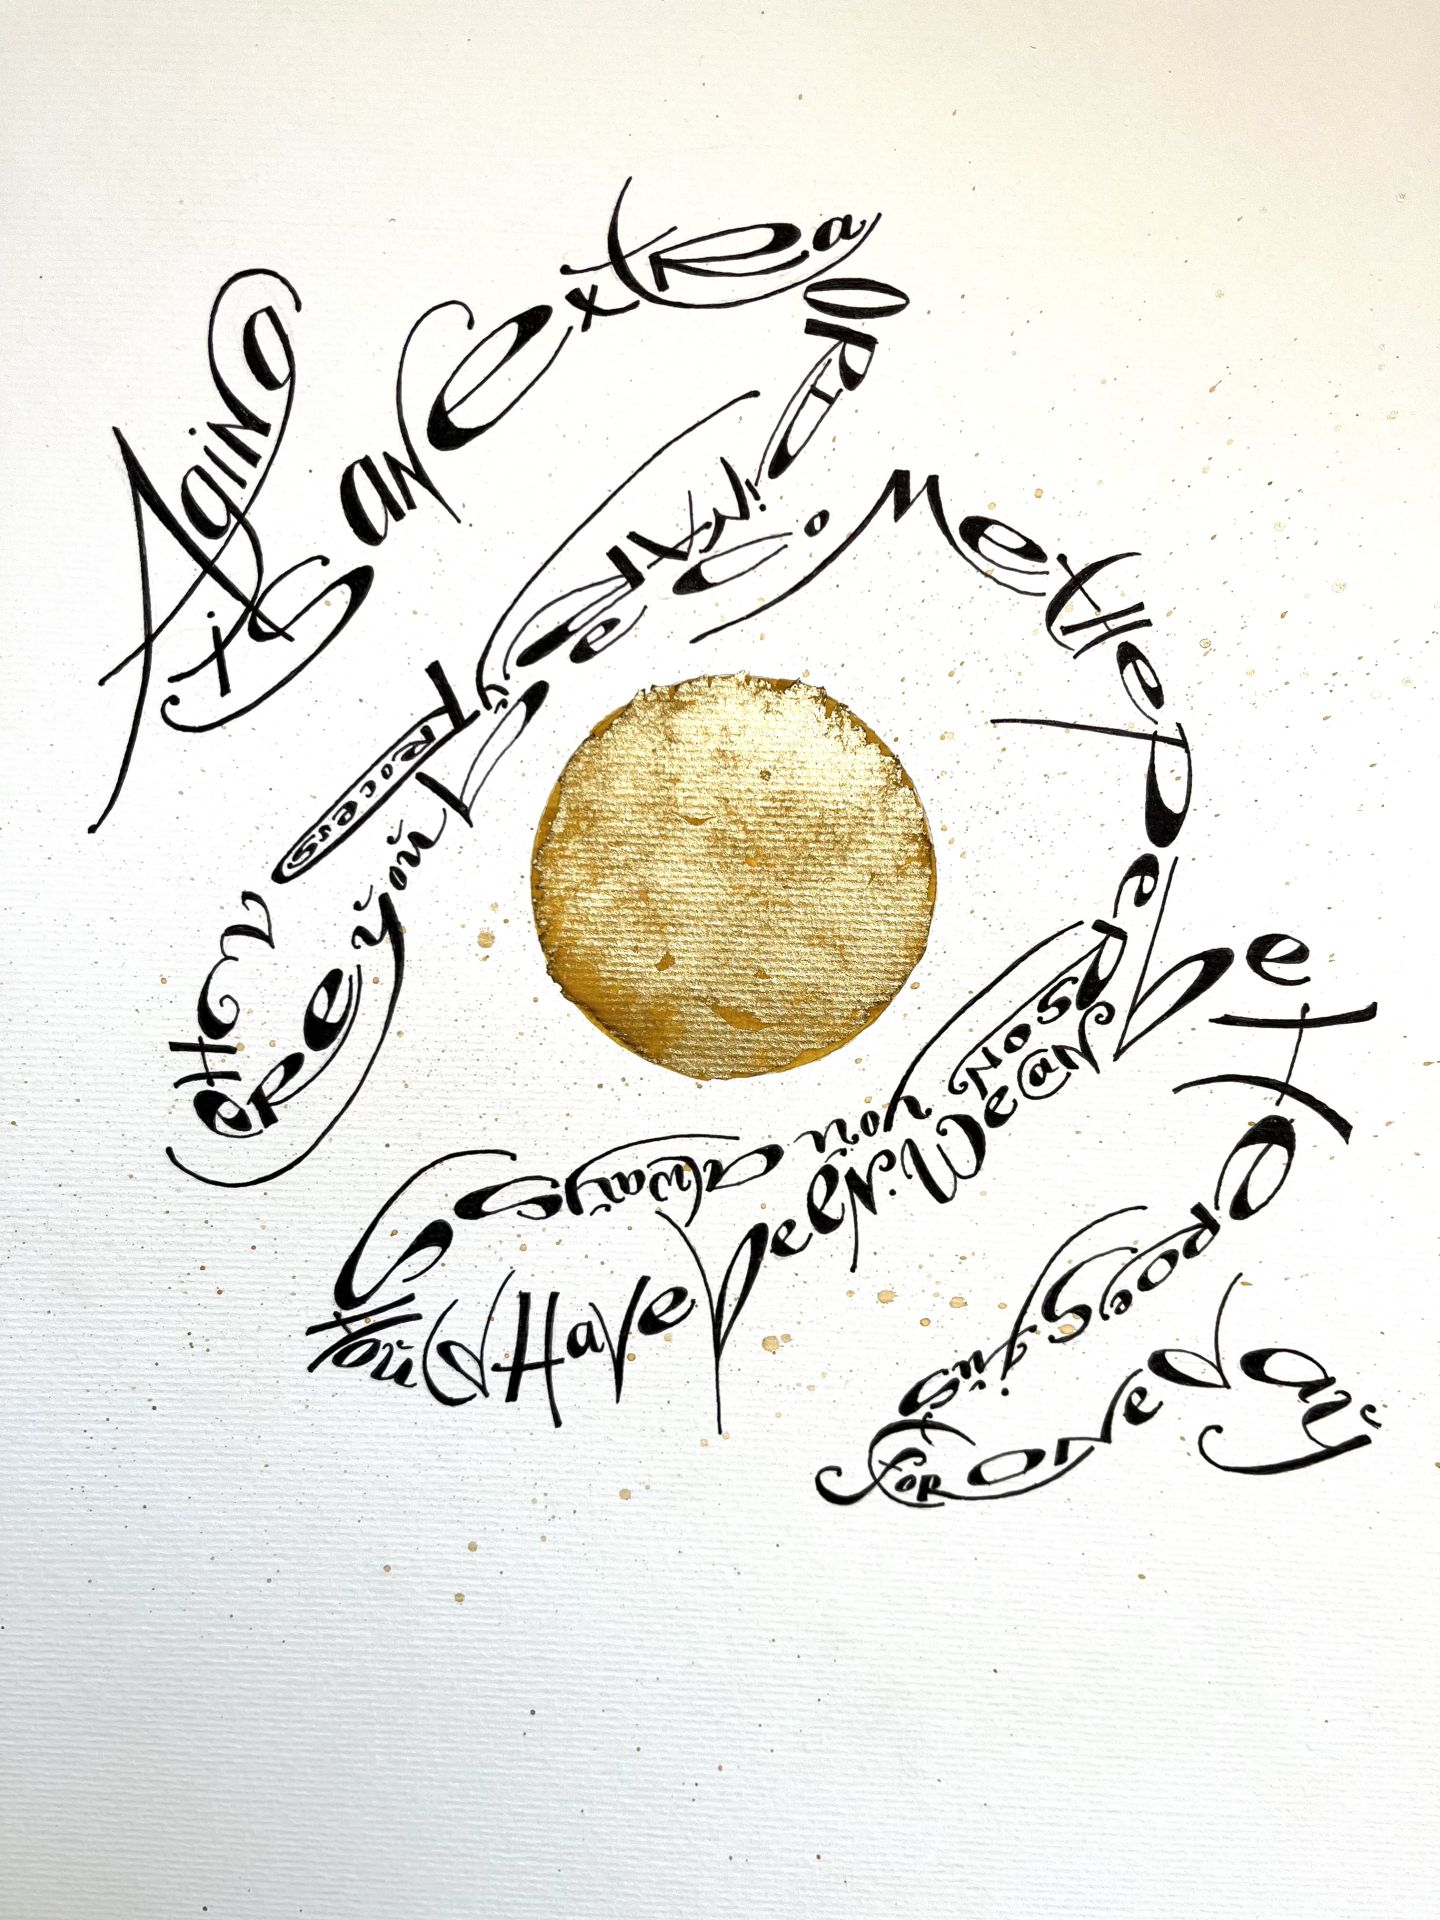 Aging
is an extra
ORDiNARy
PRocess
wHere you
become
tHe PeRson
you always
sHould Have been
We can be
HeRoes
just
foR one day